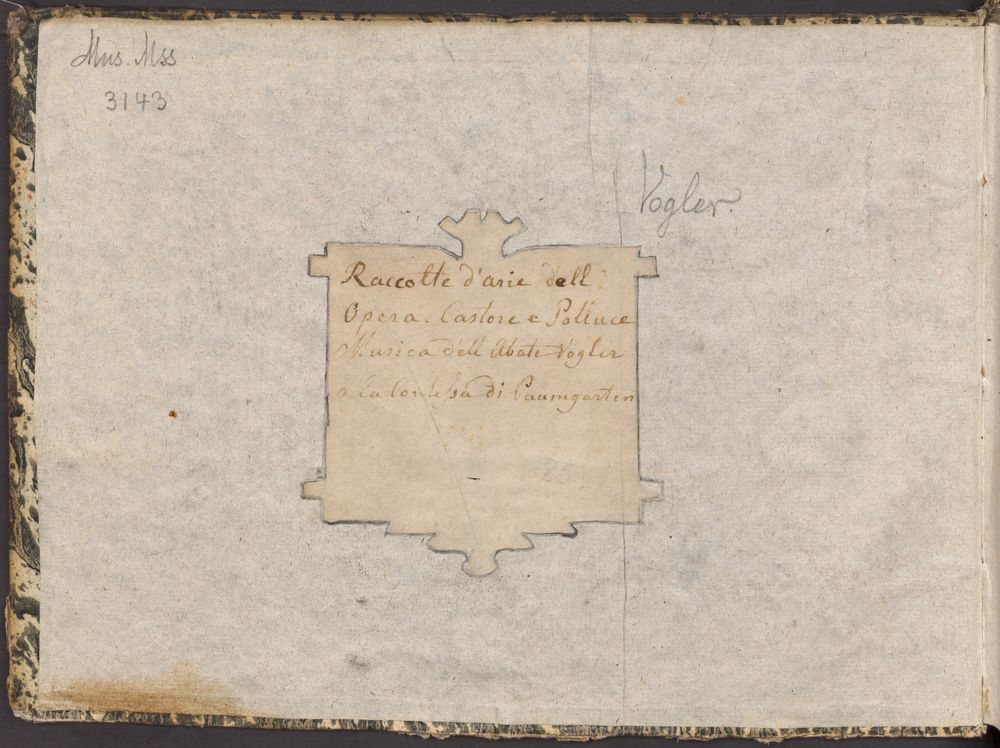 Mus. Mss
3143
Vogler.
Raccolte d'arie dell:
Opera. Castore e Polluce
Musica dell Abate Vogler
a la Contessa di Paumgarten